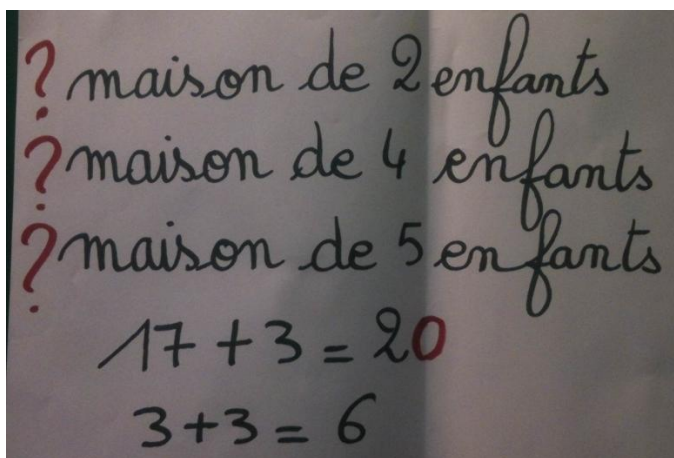 ? maison de 2 enfants
? maison de 4 enfants
? maison de 5 enfants
17 + 3 = 20
3 + 3 = 6